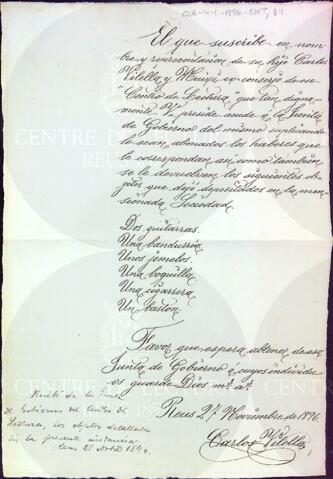 CLR-4-1-1896-ENT, 34
El que suscribe en nom-
bre y representación de su hijo Carlos
Vilella y Muigi ex-conserje de ese
"Centro de Lectura" que tan digna-
mente V. preside acude a la Junta
de Gobierno del mismo suplicando
le sean abonados los haberes que
le correspondan, asi como también
se le devuelvan los siguientes ob-
jetos que dejó depositados en la men-
cionada Sociedad.
Dos guitarras.
Una bandurria
Unos jemelos.
Una boquilla
Una cigarrera
Un baston.
Favor que espera obtener de esa
Junta de Gobierno a cuyos individu-
os guarde Dios m.s a.s
Reus 27 Noviembre de 1896.
Carlos Vilella
Recibí de la Junta
de Gobierno del Centro de
Lectura, los objetos detallados
en la presente instancia
Reus 28 Nbre 1896.
CENTRE DE LECTURA
REUS